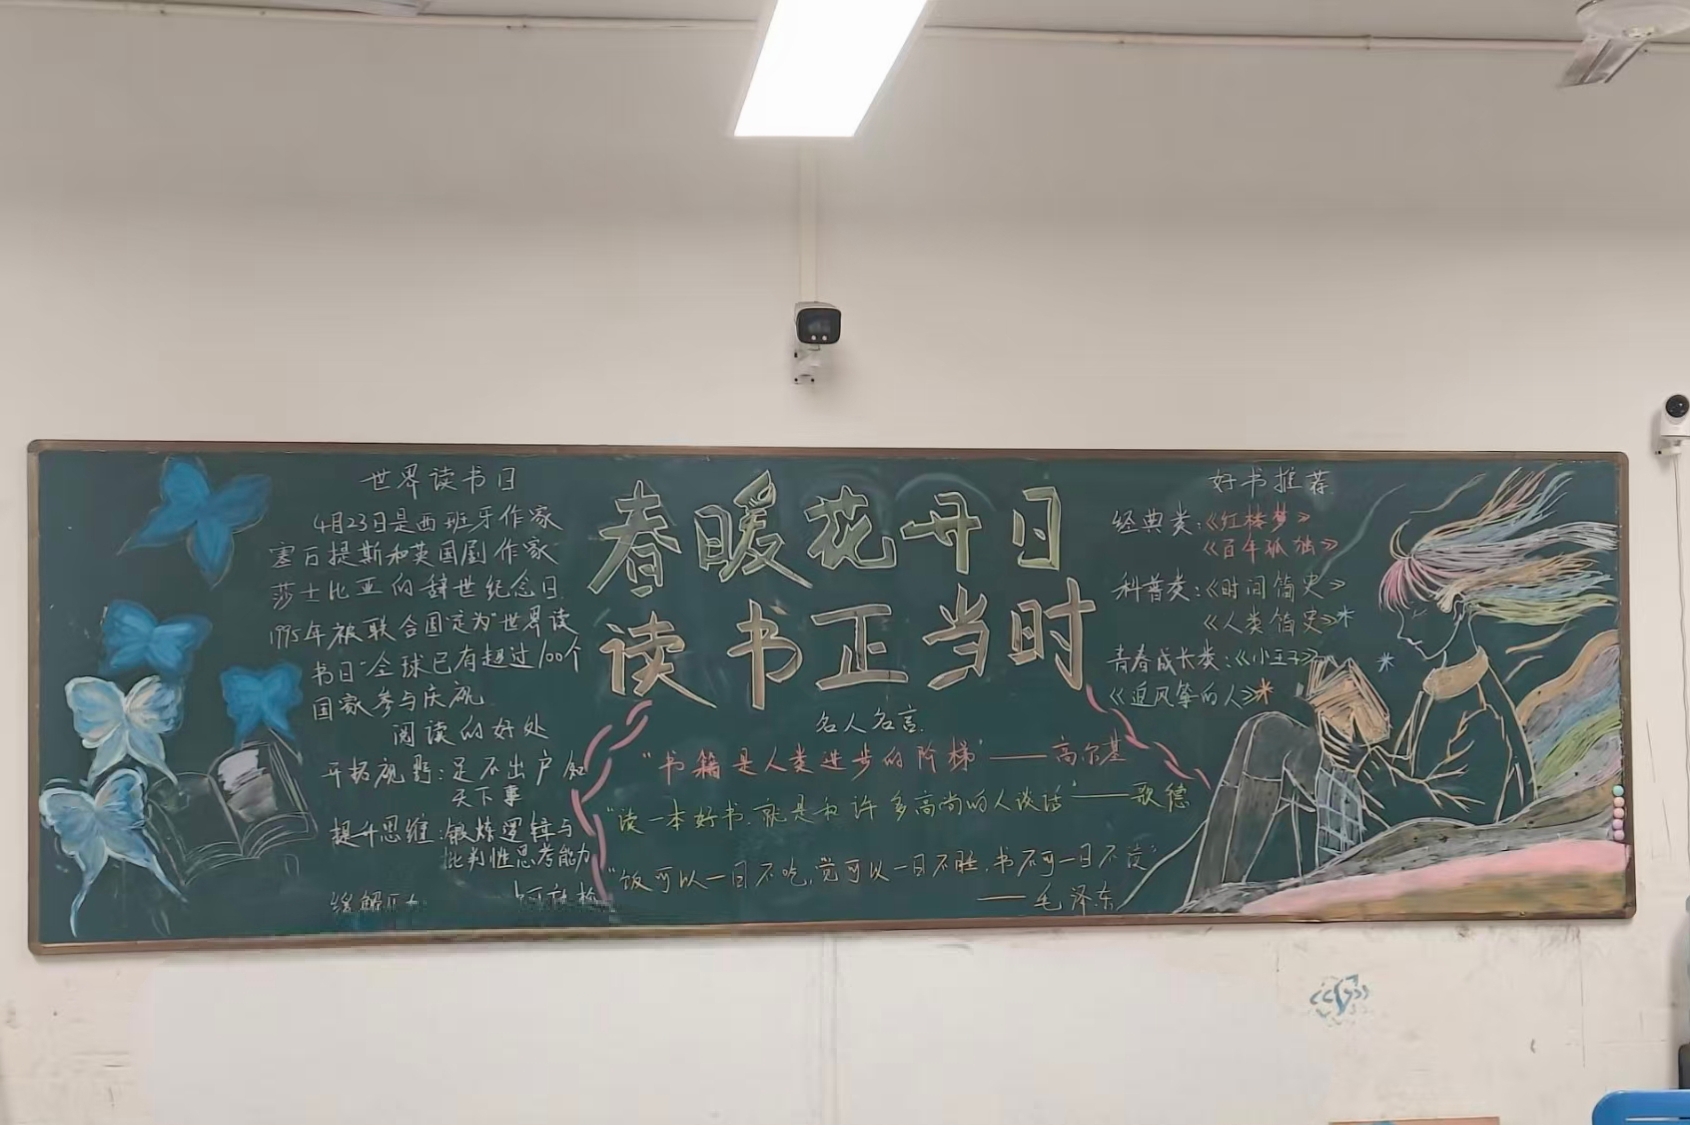 世界读书日
4月23日是西班牙作家
塞万提斯和英国剧作家
莎士比亚的辞世纪念日
1995年被联合国定为"世界读
书日"全球已有超过100个
国家参与庆祝
阅读的好处
开拓视野:足不出户知
天下事
提升思维:锻炼逻辑与
批判性思考能力
缓解压力
春暖花开日
读书正当时
名人名言
"书籍是人类进步的阶梯"——高尔基
"读一本好书,就是和许多高尚的人谈话"——歌德
"饭可以一日不吃,觉可以一日不睡,书不可一日不读"
——毛泽东
好书推荐
经典类:《红楼梦》
《百年孤独》
科普类:《时间简史》
《人类简史》
青春成长类:《小王子》
《追风筝的人》